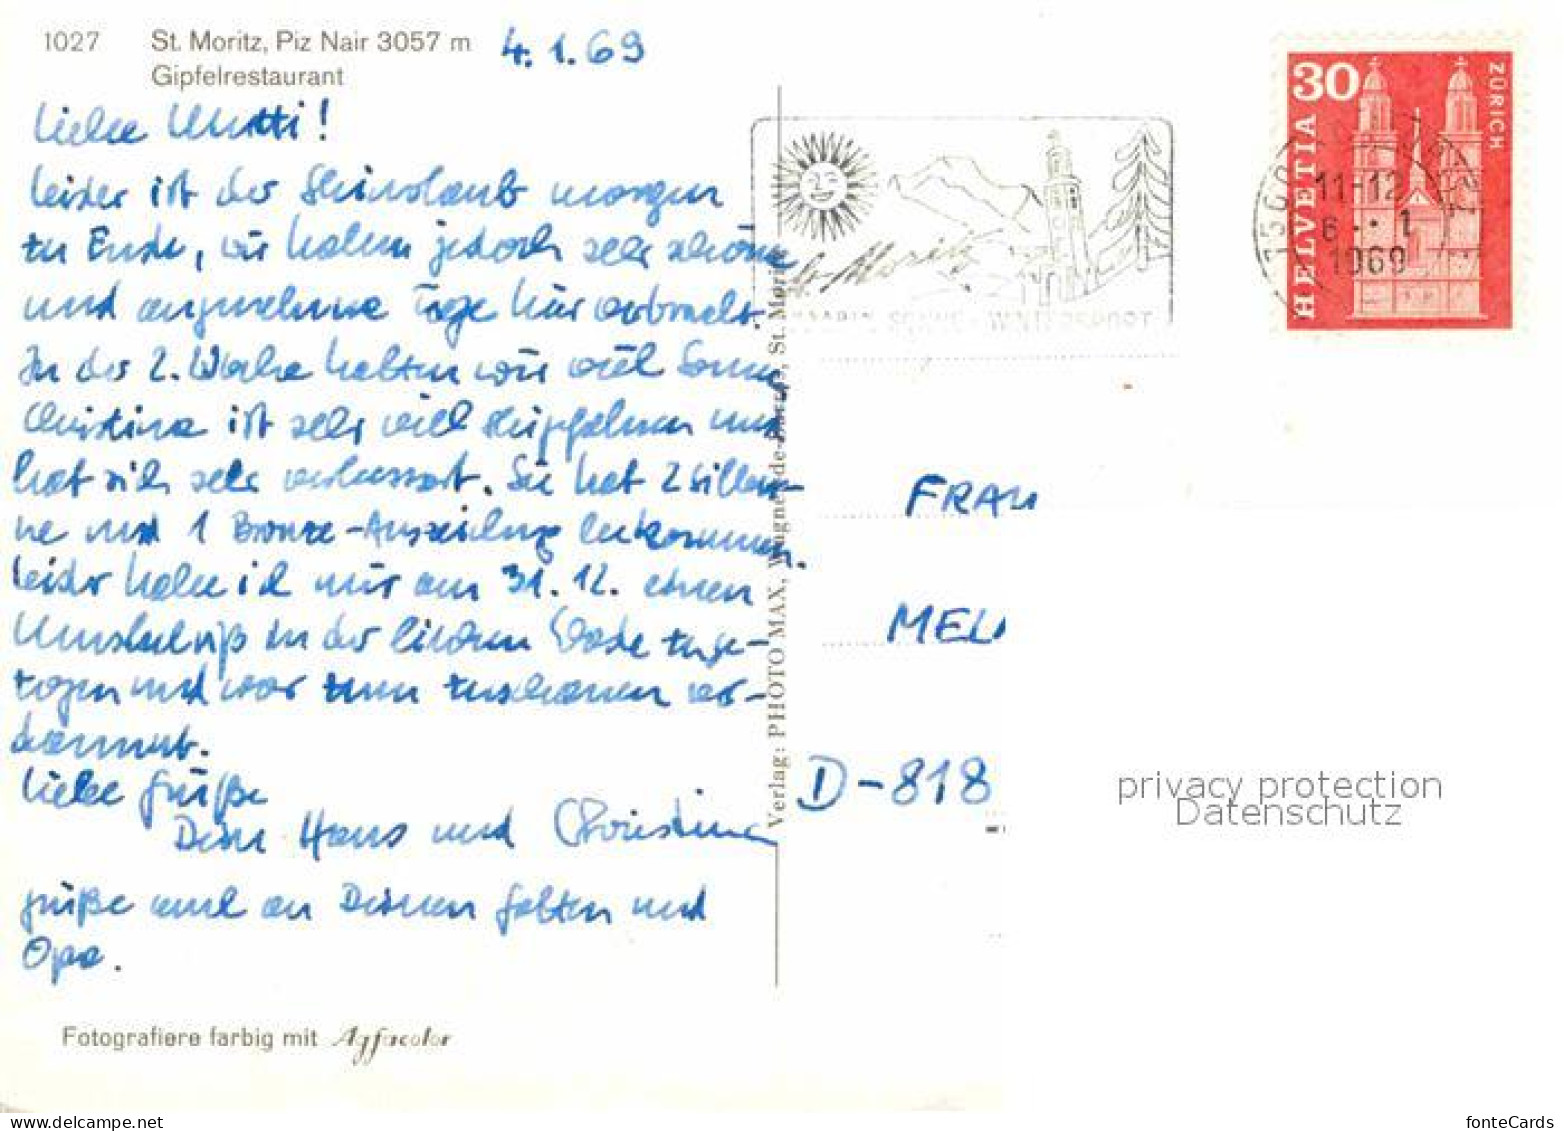 1027 St. Moritz, Piz Nair 3057 m
Gipfelrestaurant
4.1.69
Liebe Mutti!
leider ist der Skiurlaub morgen
zu Ende, wir haben jedoch sehr schöne
und angenehme Tage hier verbracht.
In der 2. Woche hatten wir viel Sonne,
Christina ist sehr viel skigefahren und
hat sich sehr verbessert. Sie hat 2 silber-
ne und 1 Bronze-Auszeichng bekommen.
leider habe ich mir am 31. 12. einen
Muskelriß in der linken Wade zuge-
zogen und war zum zuschauen ver-
dammt.
Liebe Grüße
Dein Hans und Christina
grüße auch an Deinen Gatten und
Opa.
Fotografiere farbig mit Agfacolor
Verlag: PHOTO MAX, St. Moritz
St. Moritz
SONNE - WINTERSPORT
30
HELVETIA
ZÜRICH
11-12
6.-1
1969
FRAU
MEL
D-818
privacy protection
Datenschutz
fonteCards